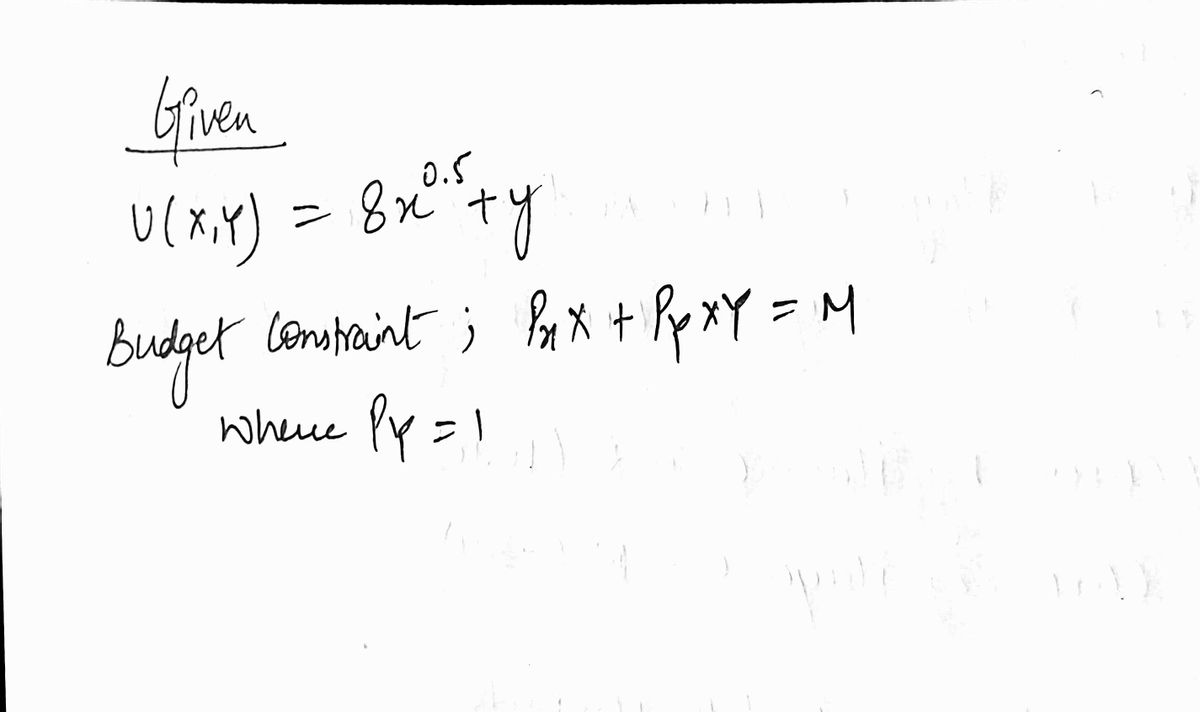 Given
U(X,Y) = 8x^0.5 + y
Budget Constraint ; Px X + Py × Y = M
where Py = 1